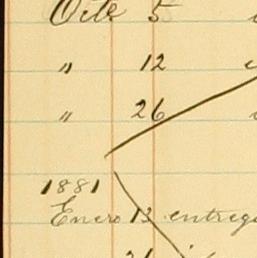 Octe 5
" 12
" 26
1881
Enero 13 entreg